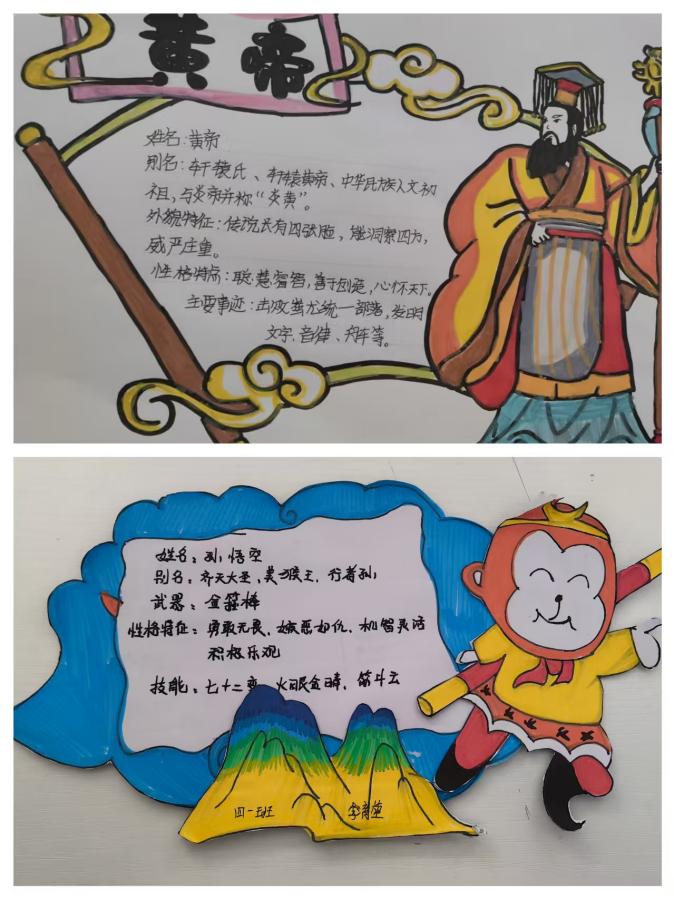 黄帝
姓名:黄帝
别名:轩辕氏、轩辕黄帝、中华民族人文初
祖,与炎帝并称“炎黄”。
外貌特征:传说长有四张脸,能洞察四方,
威严庄重。
性格特点:聪慧睿智,善于创造,心怀天下。
主要事迹:击败蚩尤统一部落,发明
文字、音律、舟车等。
姓名:孙悟空
别名:齐天大圣、美猴王、行者孙
武器:金箍棒
性格特征:勇敢无畏、嫉恶如仇、机智灵活
积极乐观
技能:七十二变、火眼金睛、筋斗云
四一班